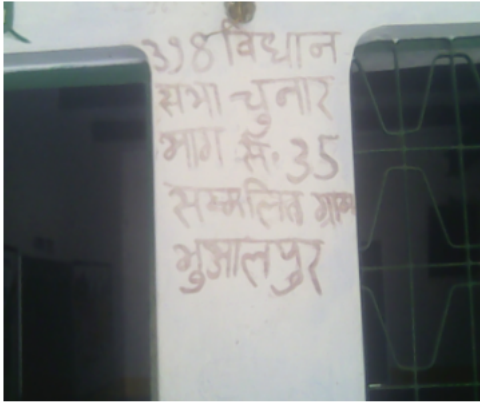 398 विधान
सभा चुनार
भाग सं. 35
सम्मलित ग्राम
भुआलपुर